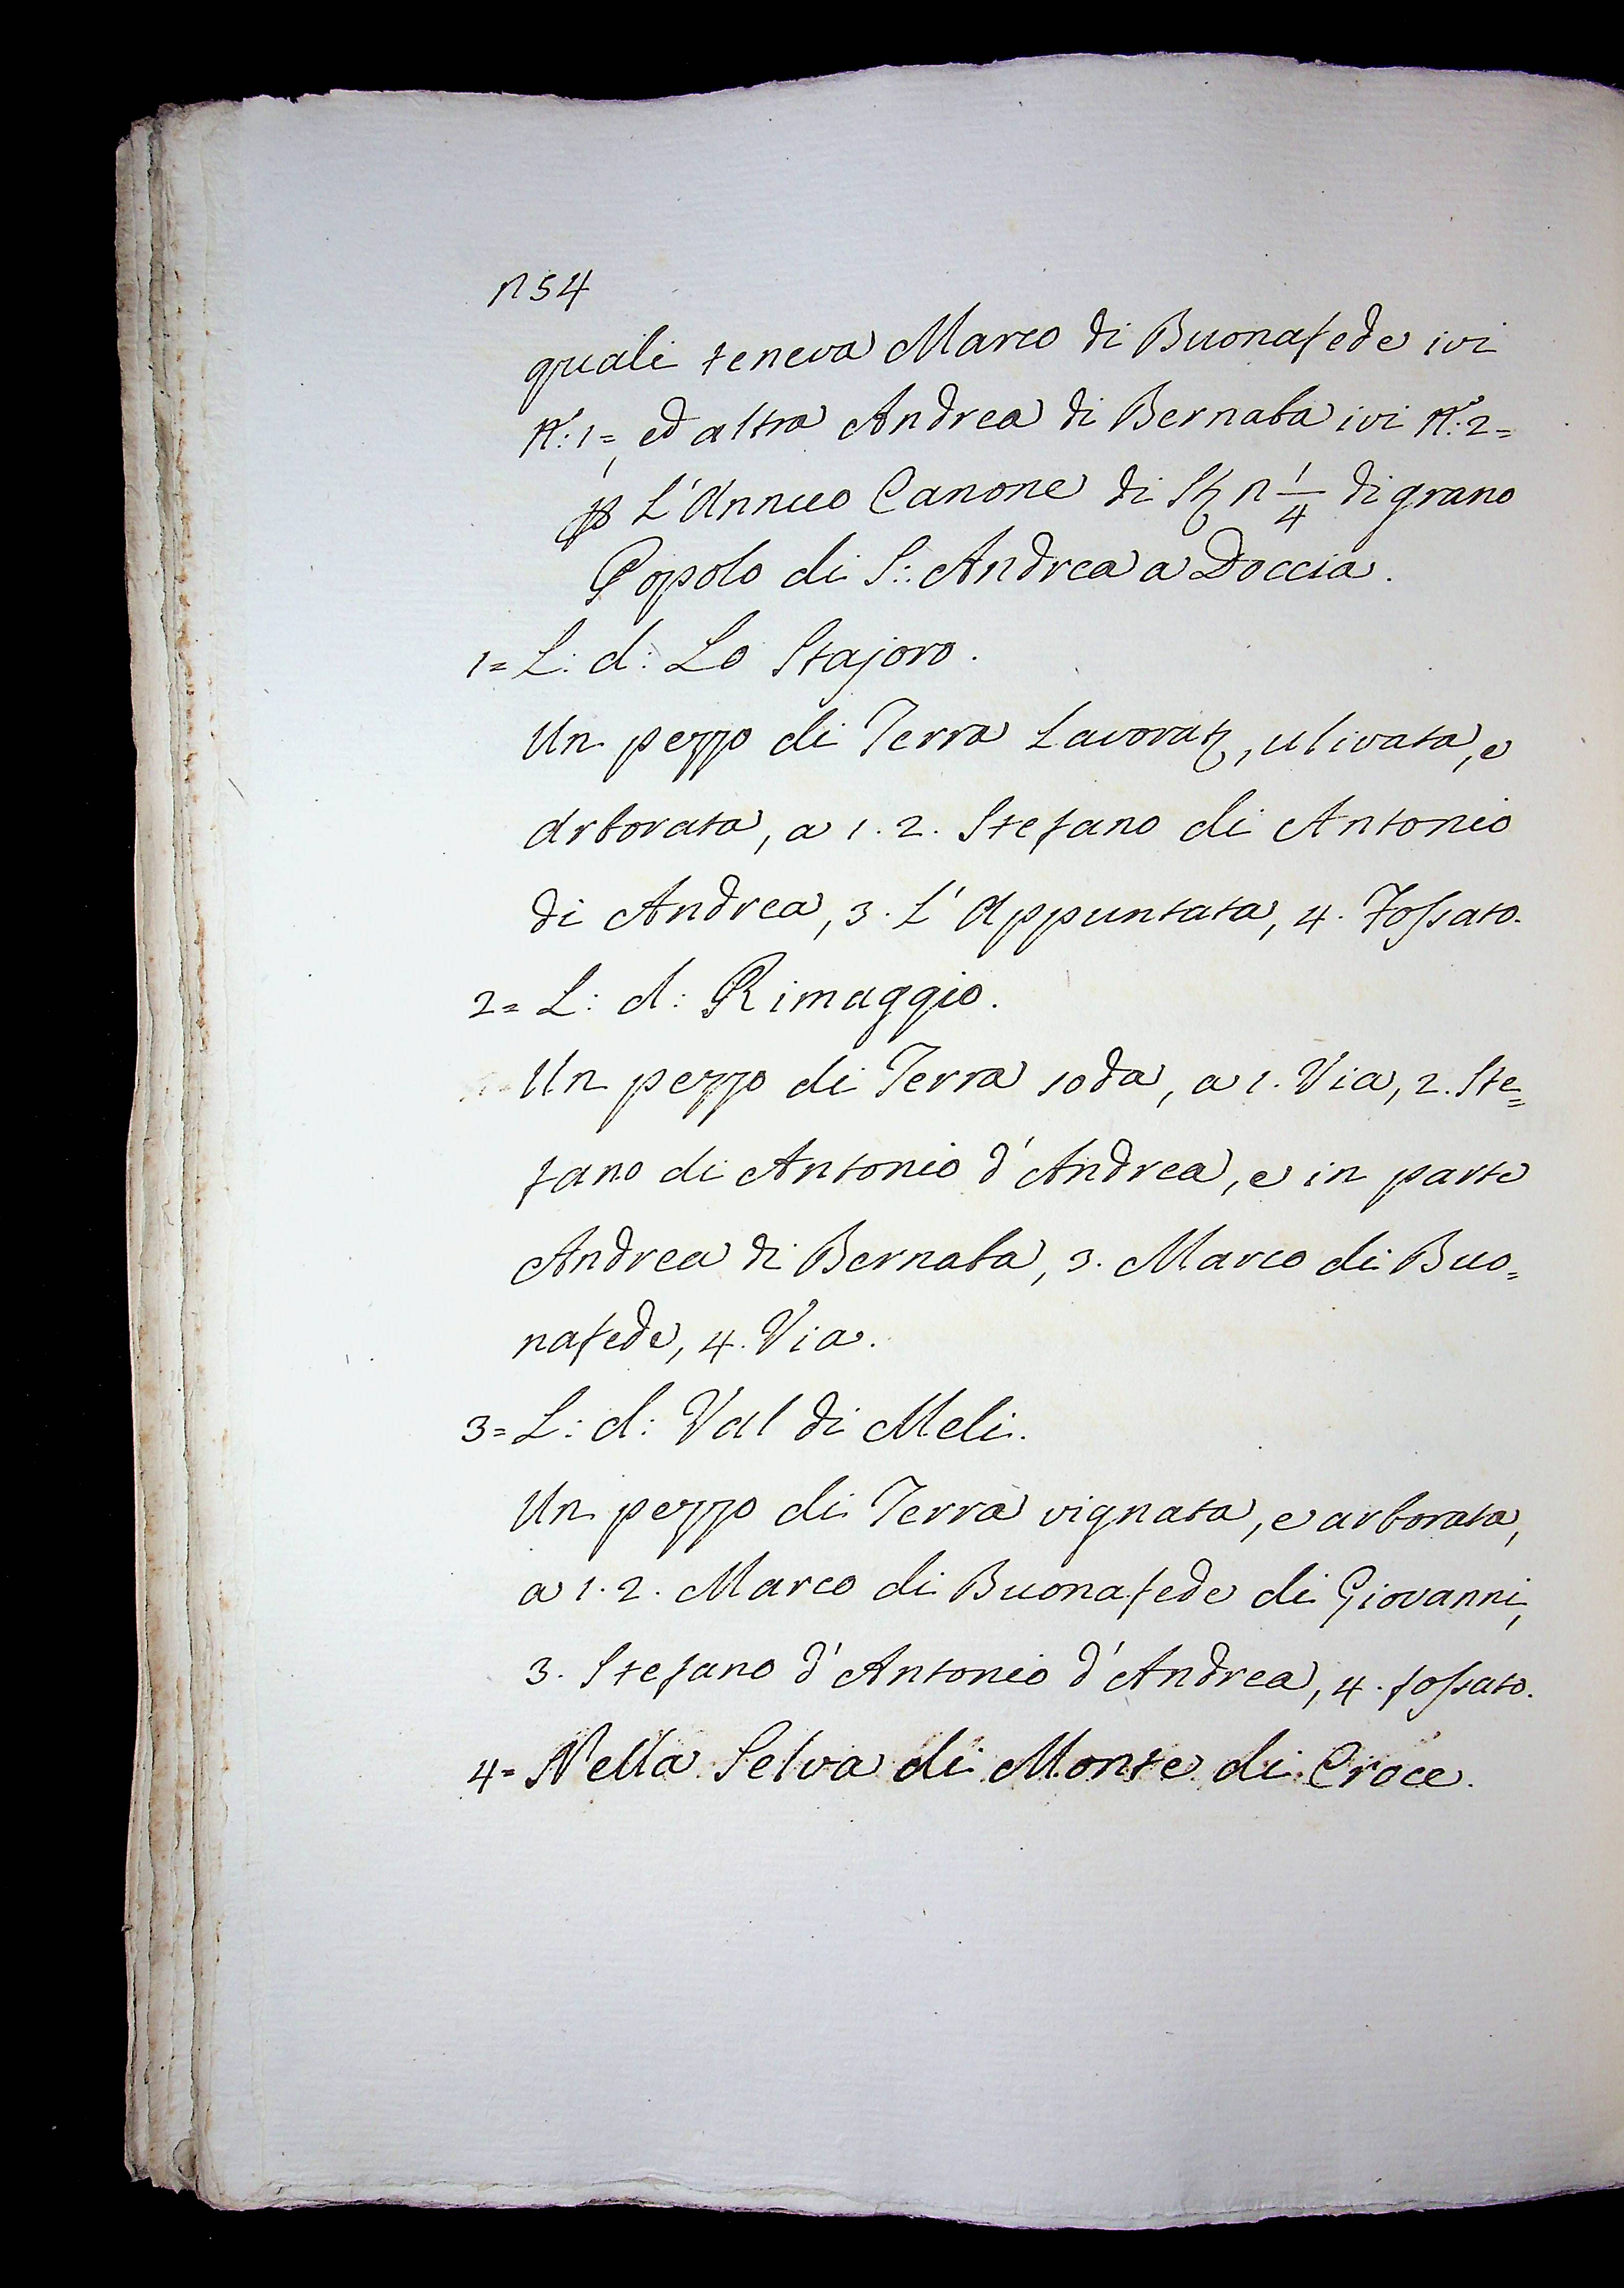 n 54
quali teneva Marco di Buonafede ivi
N.° 1=, ed altra Andrea di Bernaba ivi N.° 2=
p L'Annuo Canone di n 1/4 di grano
Popolo di S: Andrea a Doccia.
1= L: d: Lo Stajoro.
Un pezzo di Terra Lavorat, ulivata, e
arborata, a 1. 2. Stefano di Antonio
di Andrea, 3. L'Appuntata, 4. Fossato.
2= L: d: Rimaggio.
Un pezzo di Terra soda, a 1. Via, 2. Ste=
fano di Antonio d'Andrea, e in parte
Andrea di Bernaba, 3. Marco di Buo=
nafede, 4. Via.
3= L: d: Val di Meli.
Un pezzo di Terra vignata, e arborata,
a 1. 2. Marco di Buonafede di Giovanni,
3. Stefano d'Antonio d'Andrea, 4. fossato.
4= Nella Selva di Monte di Croce.